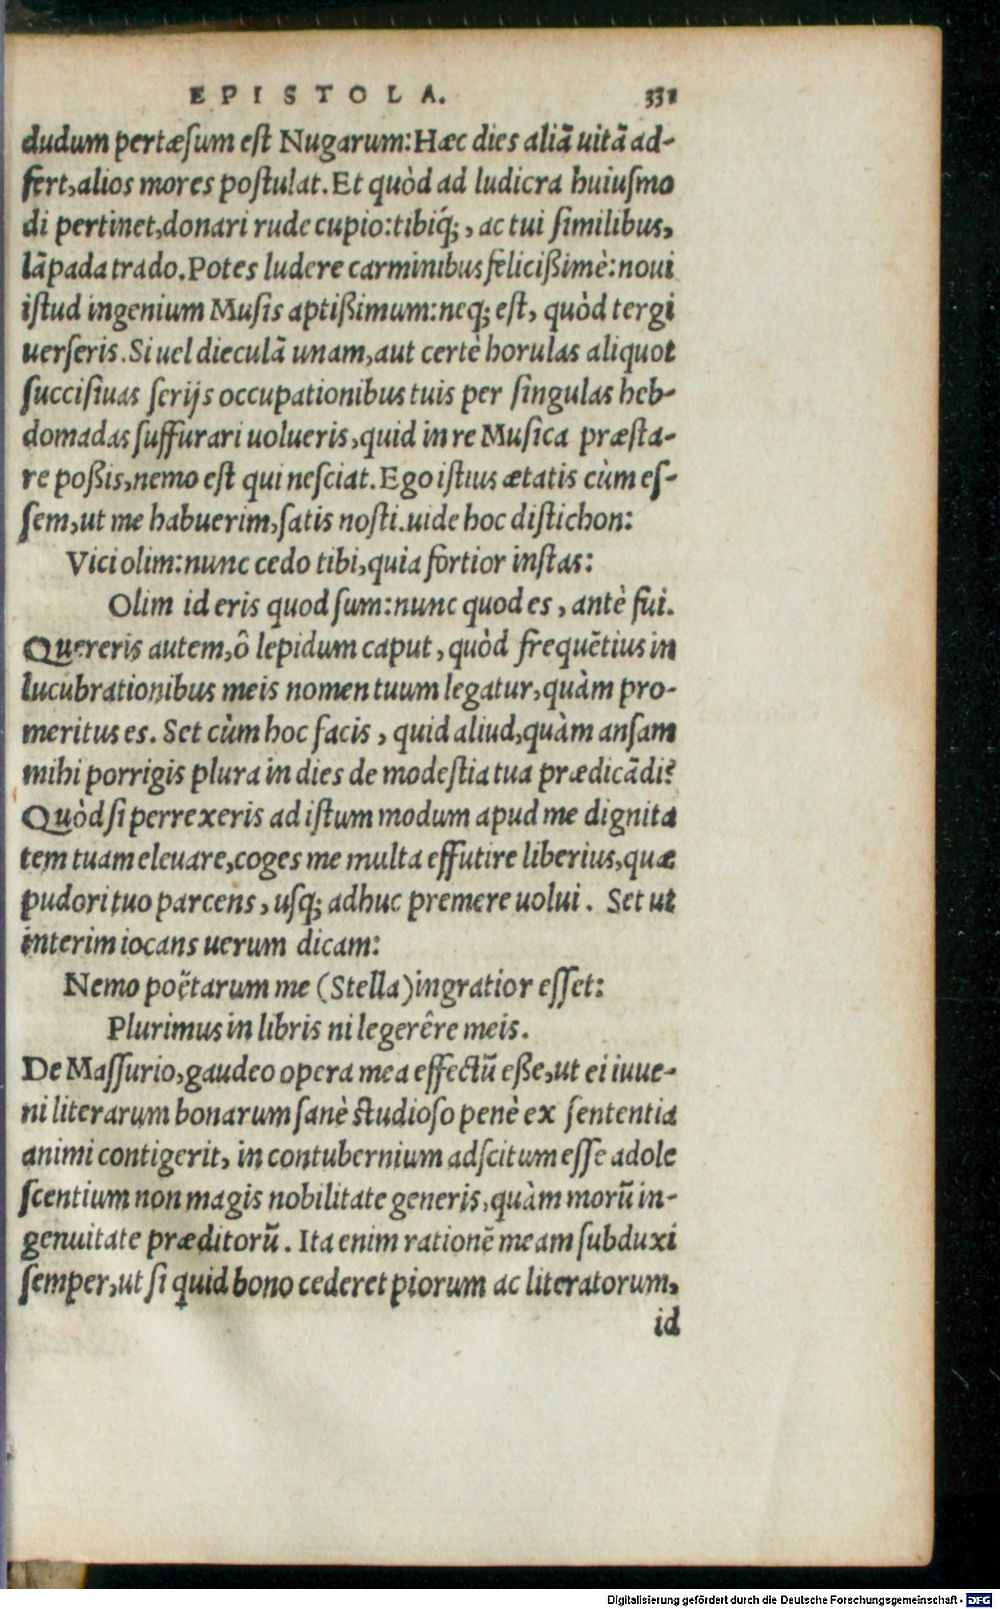 EPISTOLA. 331
dudum pertæsum est Nugarum: Hæc dies aliã uitã ad-
fert, alios mores postulat. Et quòd ad ludicra huiusmo
di pertinet, donari rude cupio: tibiq́;, ac tui similibus,
lãpada trado. Potes ludere carminibus felicißimè: noui
istud ingenium Musis aptißimum: neq; est, quòd tergi
uerseris. Si uel dieculã unam, aut certè horulas aliquot
succisiuas serijs occupationibus tuis per singulas heb-
domadas suffurari uolueris, quid in re Musica præsta-
re poßis, nemo est qui nesciat. Ego istius ætatis cùm es-
sem, ut me habuerim, satis nosti. uide hoc distichon:
Vici olim: nunc cedo tibi, quia fortior instas:
Olim id eris quod sum: nunc quod es, antè fui.
Quereris autem, ô lepidum caput, quòd frequẽtius in
lucubrationibus meis nomen tuum legatur, quàm pro-
meritus es. Set cùm hoc facis, quid aliud, quàm ansam
mihi porrigis plura in dies de modestia tua prædicãdi?
Quòd si perrexeris ad istum modum apud me dignita
tem tuam eleuare, coges me multa effutire liberius, quæ
pudori tuo parcens, usq; adhuc premere uolui. Set ut
interim iocans uerum dicam:
Nemo poëtarum me (Stella) ingratior esset:
Plurimus in libris ni legerêre meis.
De Massurio, gaudeo opera mea effectũ eße, ut ei iuue-
ni literarum bonarum sanè studioso penè ex sententia
animi contigerit, in contubernium adscitum esse adole
scentium non magis nobilitate generis, quàm morũ in-
genuitate præditorũ. Ita enim rationẽ meam subduxi
semper, ut si quid bono cederet piorum ac literatorum,
id
Digitalisierung gefördert durch die Deutsche Forschungsgemeinschaft - DFG